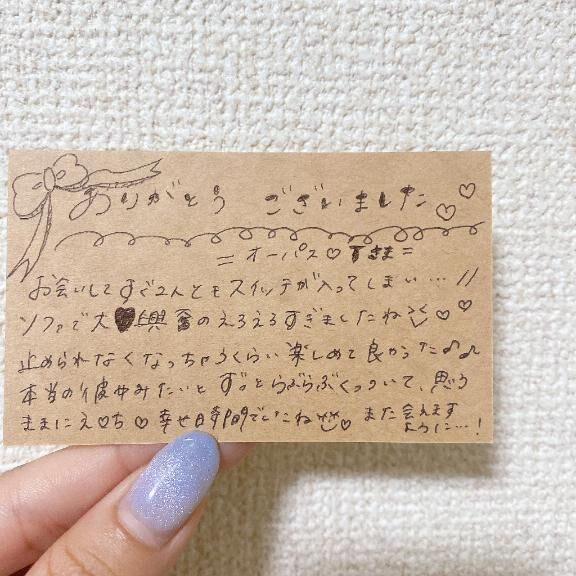 ありがとう ございました♡♡
= オーパス♡すさま =
お会いしてすぐ2人ともスイッチが入ってしまい…//
ソファで大♥興奮のえろえろすぎましたね♡♡
止められなくなっちゃうくらい楽しめて良かった♪♪
本当の彼女みたいとずっとらぶらぶくっついて、思う
ままにえ♡ち♡幸せ時間でしたね♡また会えます
ように…!